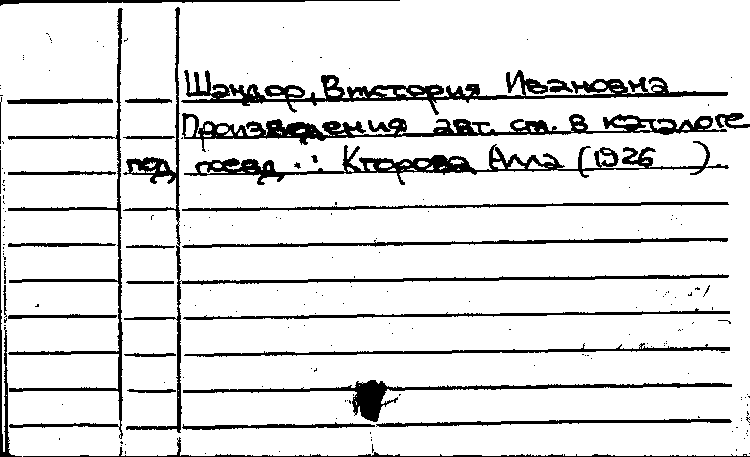 Шандор, Виктория Ивановна
Произведения авт. см. в каталоге
под псевд.: Кторова Алла (1926 ).